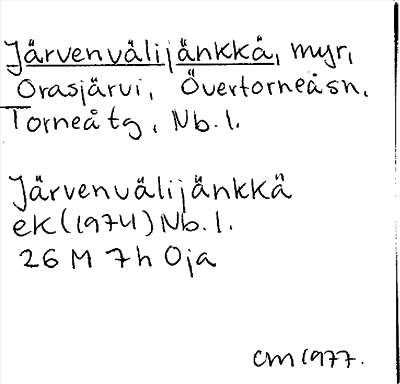 Järvenvälijänkkä, myr,
Orasjärvi, Övertorneå sn.
Torneå tg, Nb. l.
Järvenvälijänkkä
ek (1974) Nb. l.
26 M 7h Oja
CM 1977.